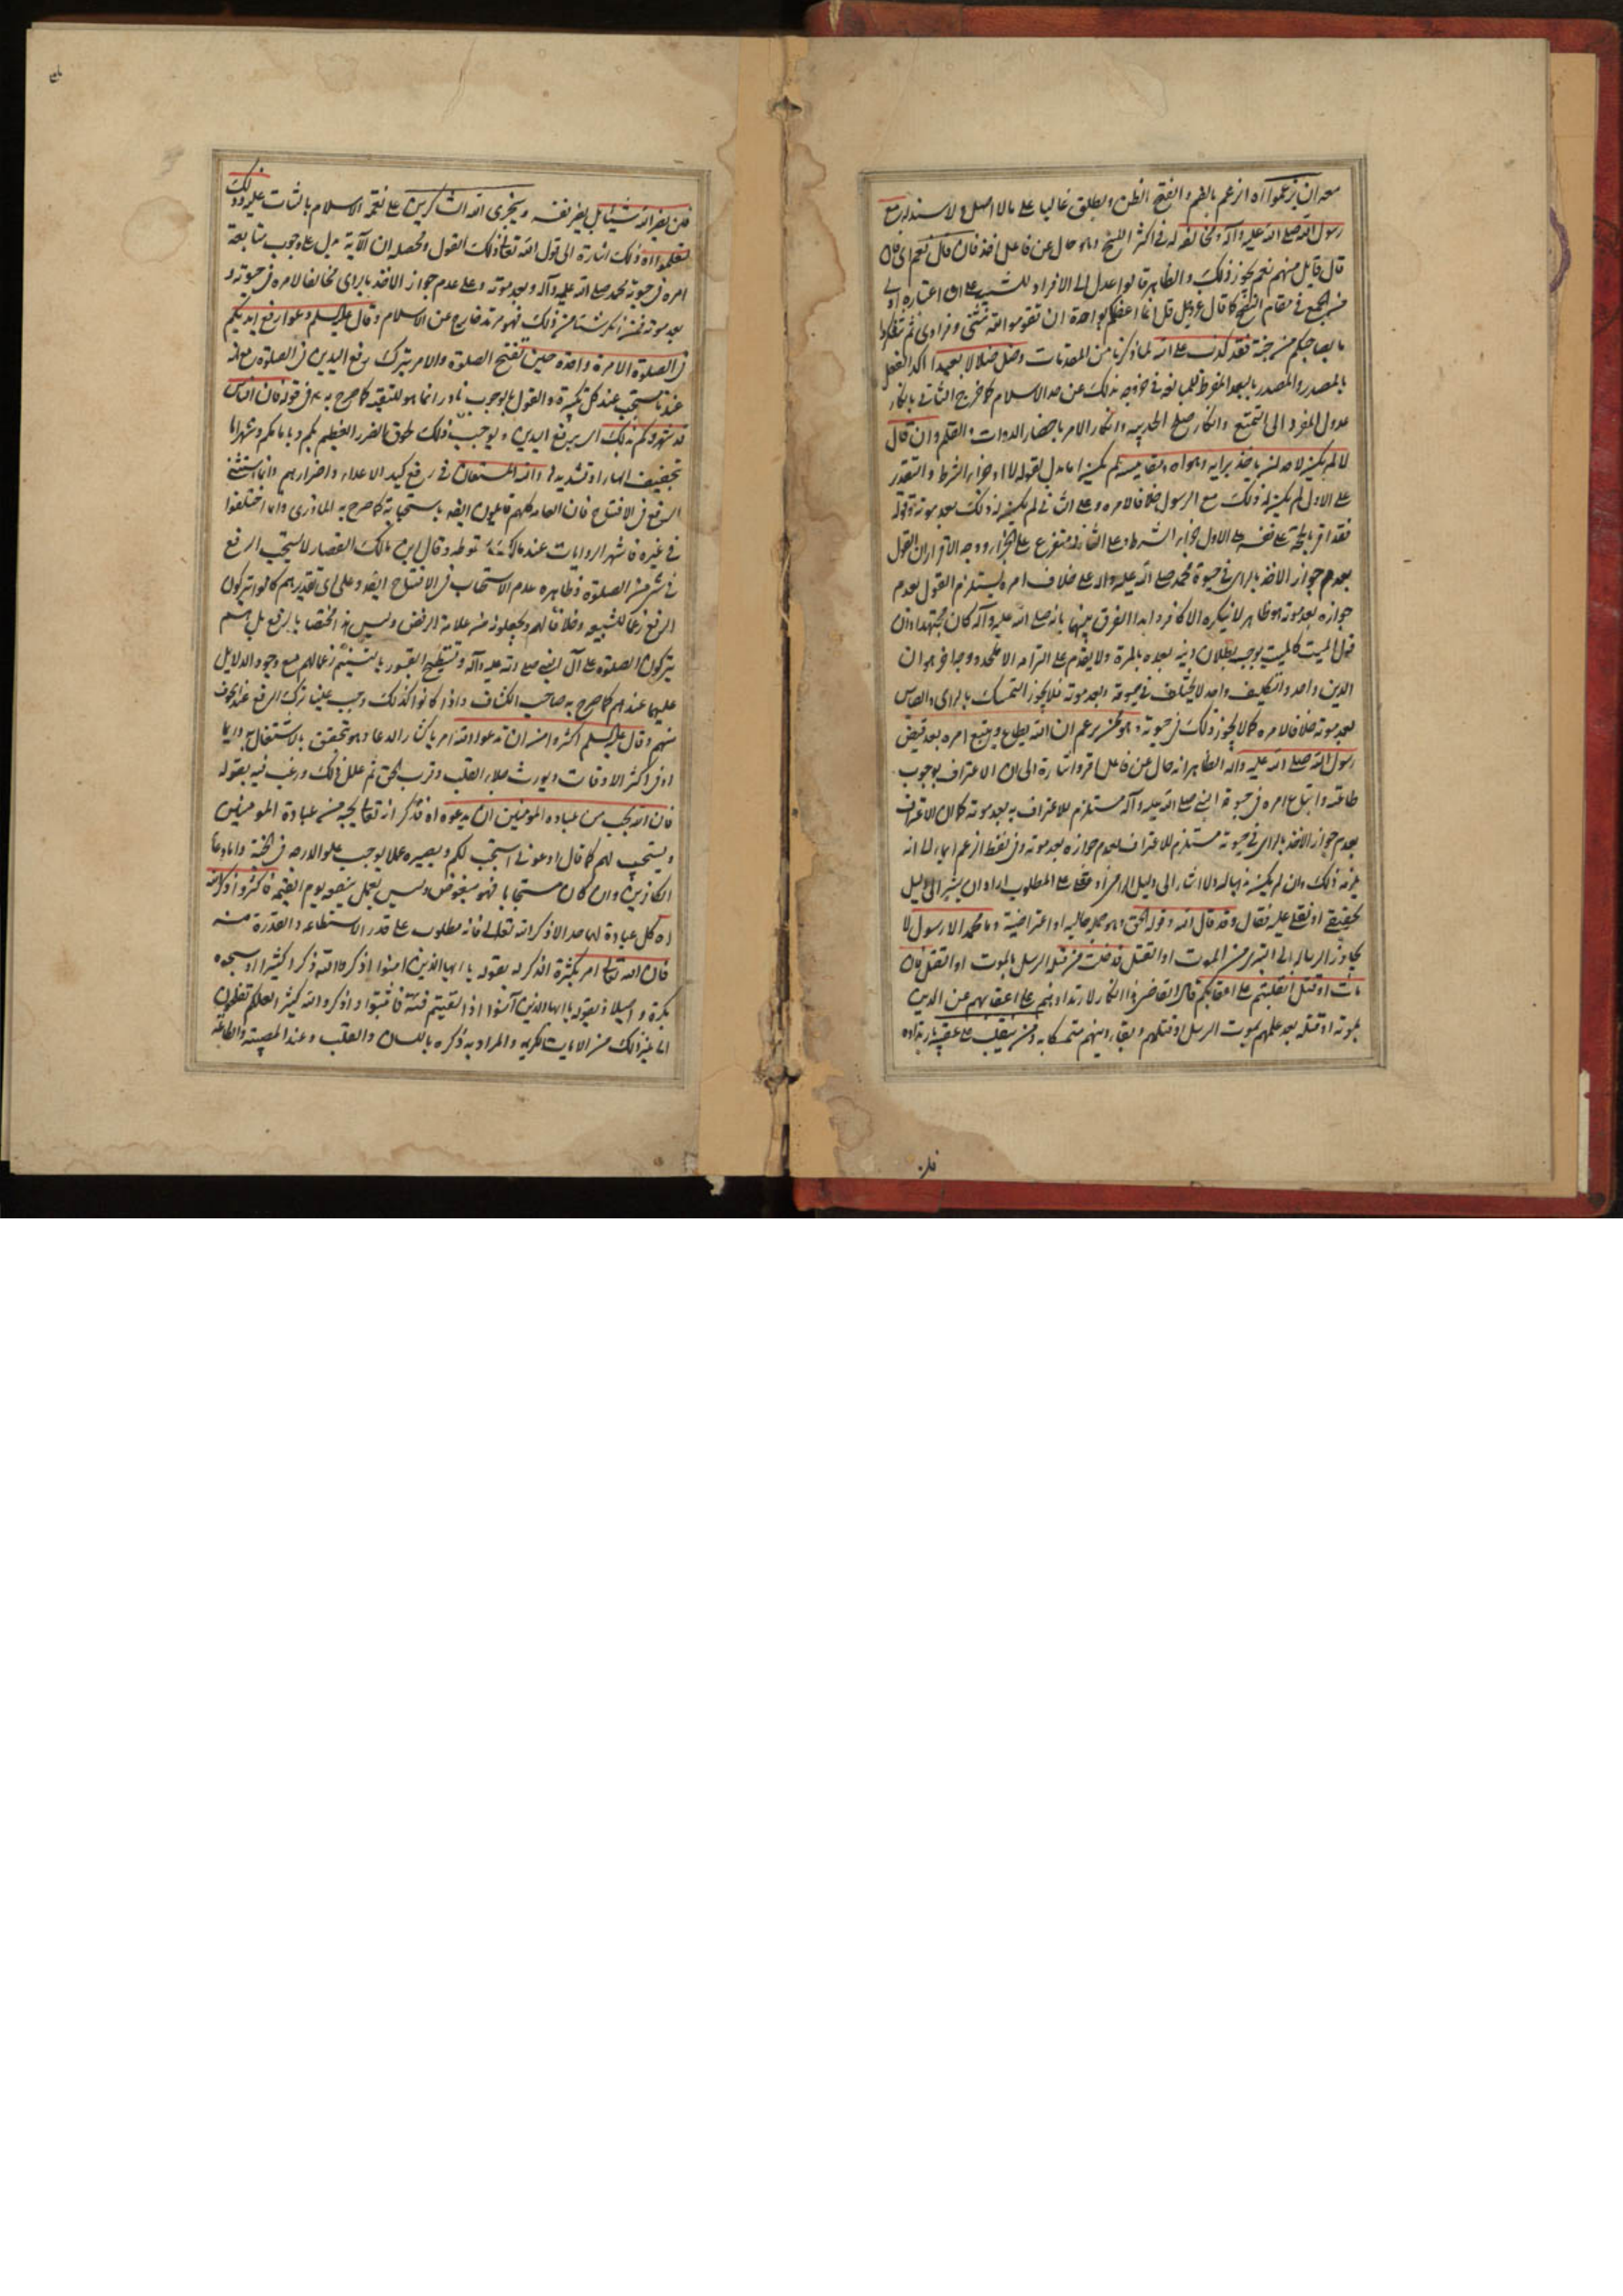 معه ان يزعموا اه الزعم بالضم والفتح الظن ويطلق غالبا على ما لا اصل له ولا سند له مع
رسول الله صلى الله عليه وآله ومخالفه له في اكثر النسخ وهو حال عن فاعل اخذ فان قال نعم اى فان
قال قايل منهم نعم يجوز ذلك والظاهر قالوا عدل الى الافراد للتنبيه على ان اعتباره اولى
من الجمع في مقام النصح كما قال عز وجل قل انما اعظكم بواحدة ان تقوموا لله مثنى وفرادى ثم تتفكروا
ما بصاحبكم من جنة فقد كذب على الله لما ذكرنا من المقدمات وضل ضلالا بعيدا اكد الفعل
بالمصدر والمصدر بالبعد المفرط للمبالغة في خروجه بذلك عن حد الاسلام كما خرج الثاني بانكار
عدول المفرد الى التمتع وانكار صلح الحديبيه وانكار الامر باحضار الدوات والقلم وان قال
لا لم يكن لاحد ان ياخذ برايه وهواه ومقاييسه لم يكن اما بدل لقوله لا او جزاء الشرط والتقدير
على الاول لم يكن له ذلك مع الرسول خلافا لامره وعلى الثاني لم يكن له ذلك بعد موته وقوله
فقد اقر بالحجة على نفسه على الاول جزاء الشرط وعلى الثاني متفرع على الجزاء ووجه الاقرار ان القول
بعدم جواز الاخذ بالراى في حيوة محمد صلى الله عليه واله على خلاف امره يستلزم القول بعدم
جوازه بعد موته وهو ظاهر لا ينكره الا كافر وابدا الفرق بينهما بانه صلى الله عليه وآله كان مجتهدا وان
قول الميت كالميت يوجب بطلان دينه بعده بالمرة ولا يقدم على التزامه الا ملحد ووجه اخر هو ان
الدين واحد والتكليف واحد لا يختلف في حيوته وبعد موته فلا يجوز التمسك بالراى والقياس
بعد موته خلافا لامره كما لا يجوز ذلك في حيوته وهو ممن يزعم ان الله يطاع ويتبع امره بعد قبض
رسول الله صلى الله عليه واله الظاهر انه حال عن فاعل اقر واشارة الى ان الاعتراف بوجوب
طاعته واتباع امره في حيوة النبي صلى الله عليه وآله مستلزم للاعتراف به بعد موته كما ان الاعتراف
بعدم جواز الاخذ بالراى في حيوته مستلزم للاعتراف بعدم جوازه بعد موته وفي لفظ الزعم ايماء الى انه
يلزمه ذلك وان لم يكن في باله ولما اشار الى دليل الزامى او عقلى على المطلوب اراد ان يشير الى دليل
تحقيقي او نقلي عليه فقال وقد قال الله وقوله الحق وهو جمله حاليه او اعتراضية وما محمد الا رسول لا
يجاوز الرساله الى التبرى من الموت او القتل قد خلت من قبله الرسل بالموت او القتل فان
مات او قتل انقلبتم على اعقابكم قال القاضي هذا انكار لارتدادهم على اعقابهم عن الدين
بموته او قتله بعد علمهم بموت الرسل او قتلهم وبقاء دينهم متمسكا به ومن ينقلب على عقبيه بارتداده
فلن
فلن يضر الله شيئا بل يضر نفسه وسيجزى الله الشاكرين على نعمة الاسلام بالثبات عليه وذلك
لتعلموا اه ذلك اشارة الى قول الله تعالى او ذلك القول ومحصله ان الآية تدل على وجوب متابعة
امره في حيوة محمد صلى الله عليه وآله وبعد موته وعلى عدم جواز الاخذ بالراى مخالفا لامره في حيوته و
بعد موته فمن انكر شيئا من ذلك فهو مرتد خارج عن الاسلام وقال عليه السلم دعوا رفع ايديكم
في الصلوة الا مرة واحدة حين تفتتح الصلوة والامر بترك رفع اليدين في الصلوة مع انه
عندنا مستحب عند كل تكبيرة والقول بالوجوب نادر انما هو للتقيه كما صرح به في قوله فان الناس
قد شهروكم بذلك اى برفع اليدين ويوجب ذلك لحوق الضرر العظيم بكم وباما مكم وشهر اما
بتخفيف الهاء او تشديدها والله المستعان في رفع كيد الاعداء واضرارهم وانما استثنى
الرفع في الافتتاح فان العامه كلهم قايلون ايضا باستحبابه كما صرح به المازرى وانما اختلفوا
في غيره فاشهر الروايات عند مالك سقوطه وقال ابن مالك القصار لا يستحب الرفع
في شى من الصلوة وظاهره عدم الاستحباب في الافتتاح ايضا وعلى اى تقدير هم كانوا يتركون
الرفع زعما للشيعه وخلافا لهم ويجعلونه من علامة الرفض وليس هذا مختصا بالرفع بل هم
يتركون الصلوة على آل النبي صلى الله عليه وآله وتسطيح القبور بالتسنيم زعما لهم مع وجود الدلايل
عليها عندهم كما صرح به صاحب الكشاف واذا كانوا كذلك وجب علينا ترك الرفع عند الخوف
منهم وقال عليه السلم اكثروا من ان تدعوا الله امر باكثار الدعا وهو يتحقق بالاشتغال به دايما
او في اكثر الاوقات ويورث جلاء القلب وقرب الحق ثم علل ذلك ورغب فيه بقوله
فان الله يحب من عباده المؤمنين ان يدعوه اه فذكر انه تعالى يحبه من عبادة المومنين
ويستجيب لهم كما قال ادعوني استجب لكم ويصيره عملا يوجب علو الدرجه في الجنة واما دعا
الكافرين وان كان مستجابا فهو مبغوض وليس بعمل ينفعه يوم القيمة فاكثروا ذكر الله
اه كل عبادة لها حد الا ذكر الله تعالى فانه مطلوب على قدر الاستطاعه والقدرة منه
فان الله تعالى امر بكثرة الذكر له بقوله يا ايها الذين امنوا اذكروا الله ذكرا كثيرا وسبحوه
بكرة واصيلا وبقوله يا ايها الذين آمنوا اذا لقيتم فئة فاثبتوا واذكروا الله كثيرا لعلكم تفلحون
الى غير ذلك من الايات الكريمه والمراد به ذكره باللسان والقلب وعند المصيبة والطاعة